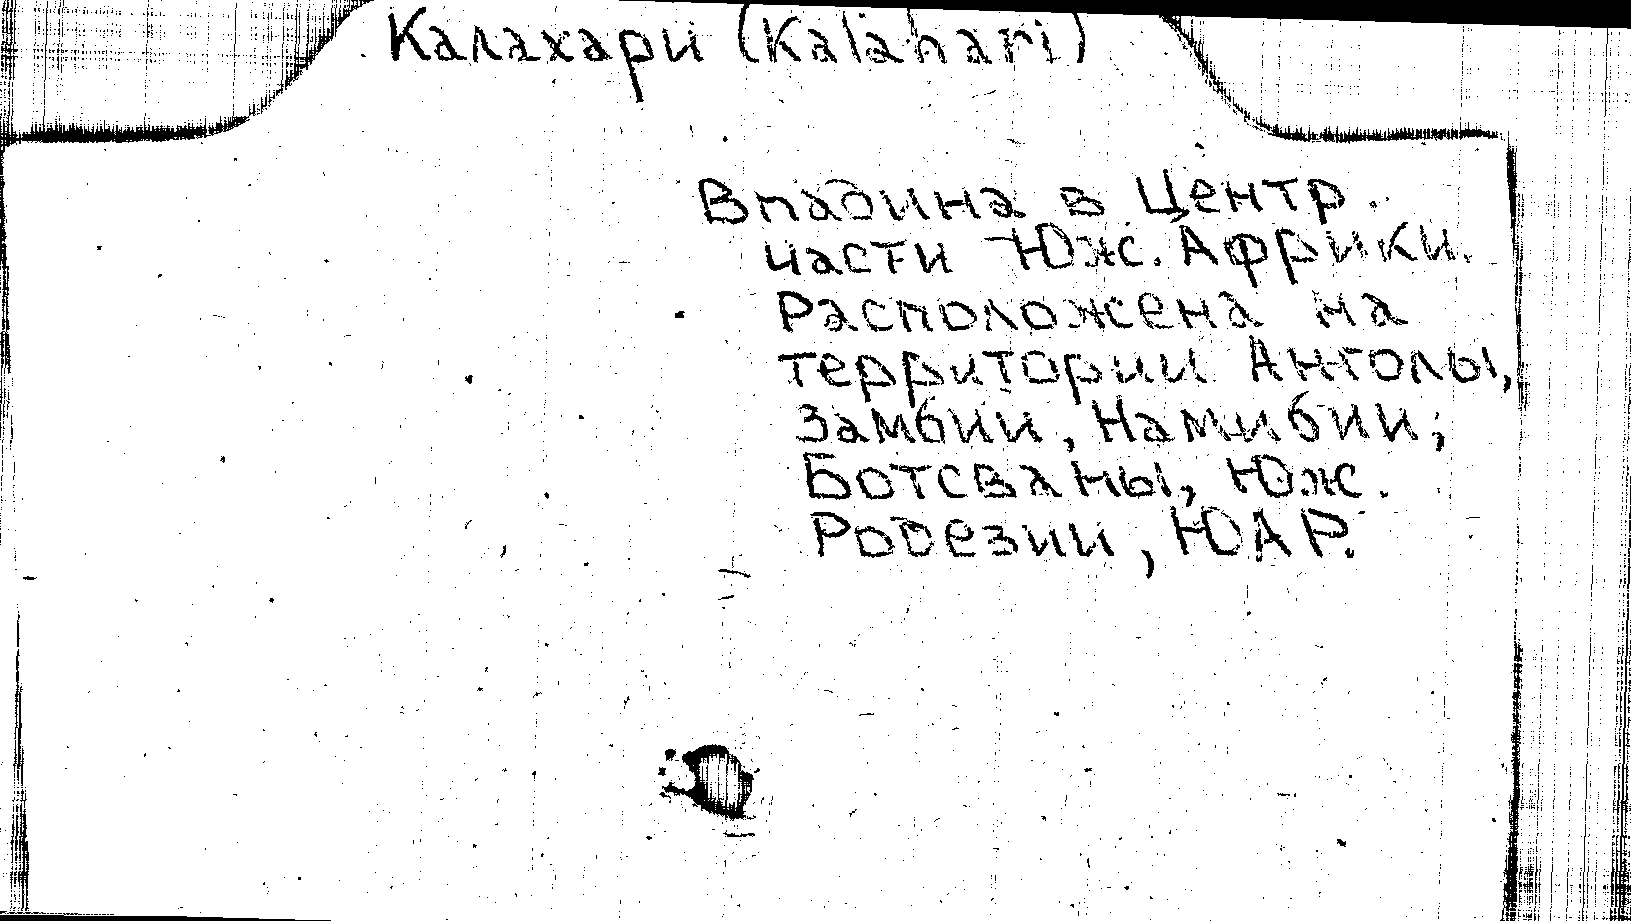 Калахари (Kalahari)
Впадина в Центр.
части Юж. Африки.
Расположена на
территории Анголы,
Замбии, Намибии;
Ботсваны, Юж.
Родезии, ЮАР.